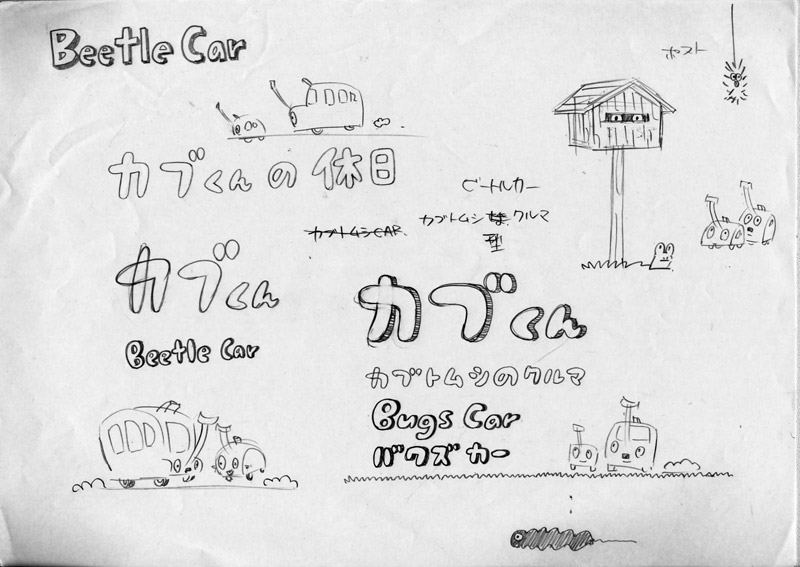 Beetle Car
ポスト
カブくんの休日
ビートルカー
カブトムシCAR
カブトムシ様クルマ
型
カブくん
Beetle Car
カブくん
カブトムシのクルマ
Bugs Car
バグズカー